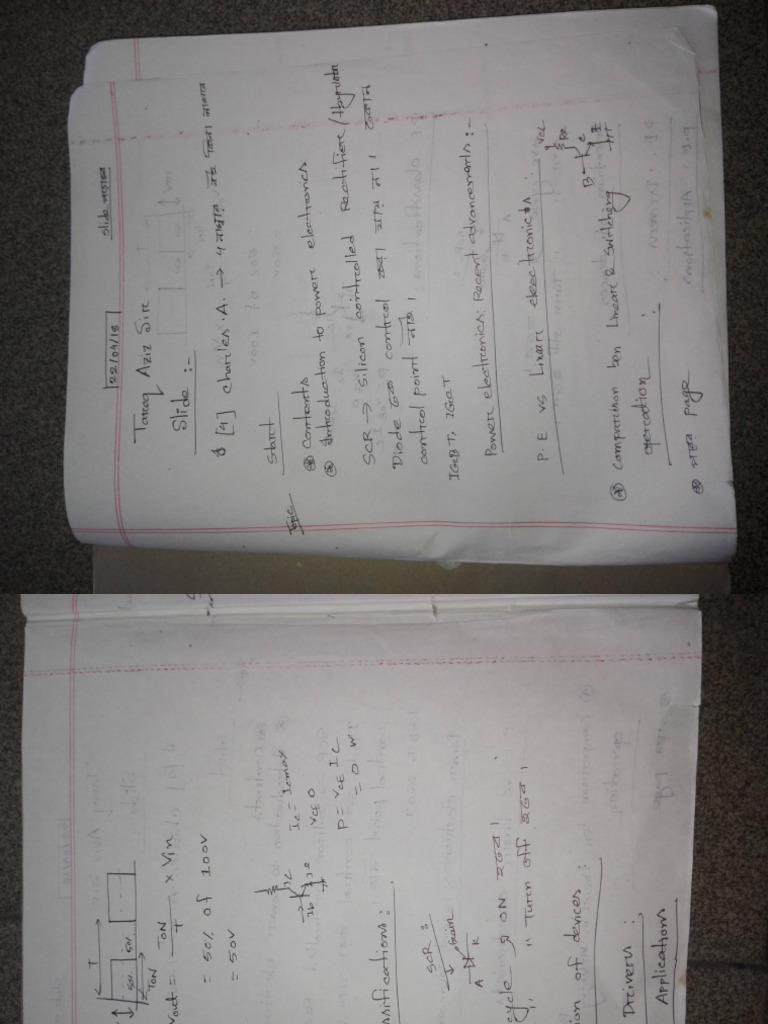 22/04/18
Tareq Aziz Sir
Slide :-
[4] Charles .A. →
Start
Topic
Contents
Introduction to power electronics
SCR → Silicon controlled Rectifier / thyristor
Diode কে control করা যায় না।
control point নাই।
IGBT, IGCT
Power electronics: Recent advancements :-
P.E vs Linear electronics :
Comparison bet Linear & switching
operation :
page
Vcc
Rc
B
C
E
T
50V
50V
TON
Vout = TON / T × Vin
= 50% of 100V
= 50V
Ic = Icmax
VCE 0
P = VCE IC
= 0 W
ssifications :
SCR :
Gain
A
K
cycle এ ON হবে।
" Turn off হবে।
ion of devices :
Drivers :
Applications